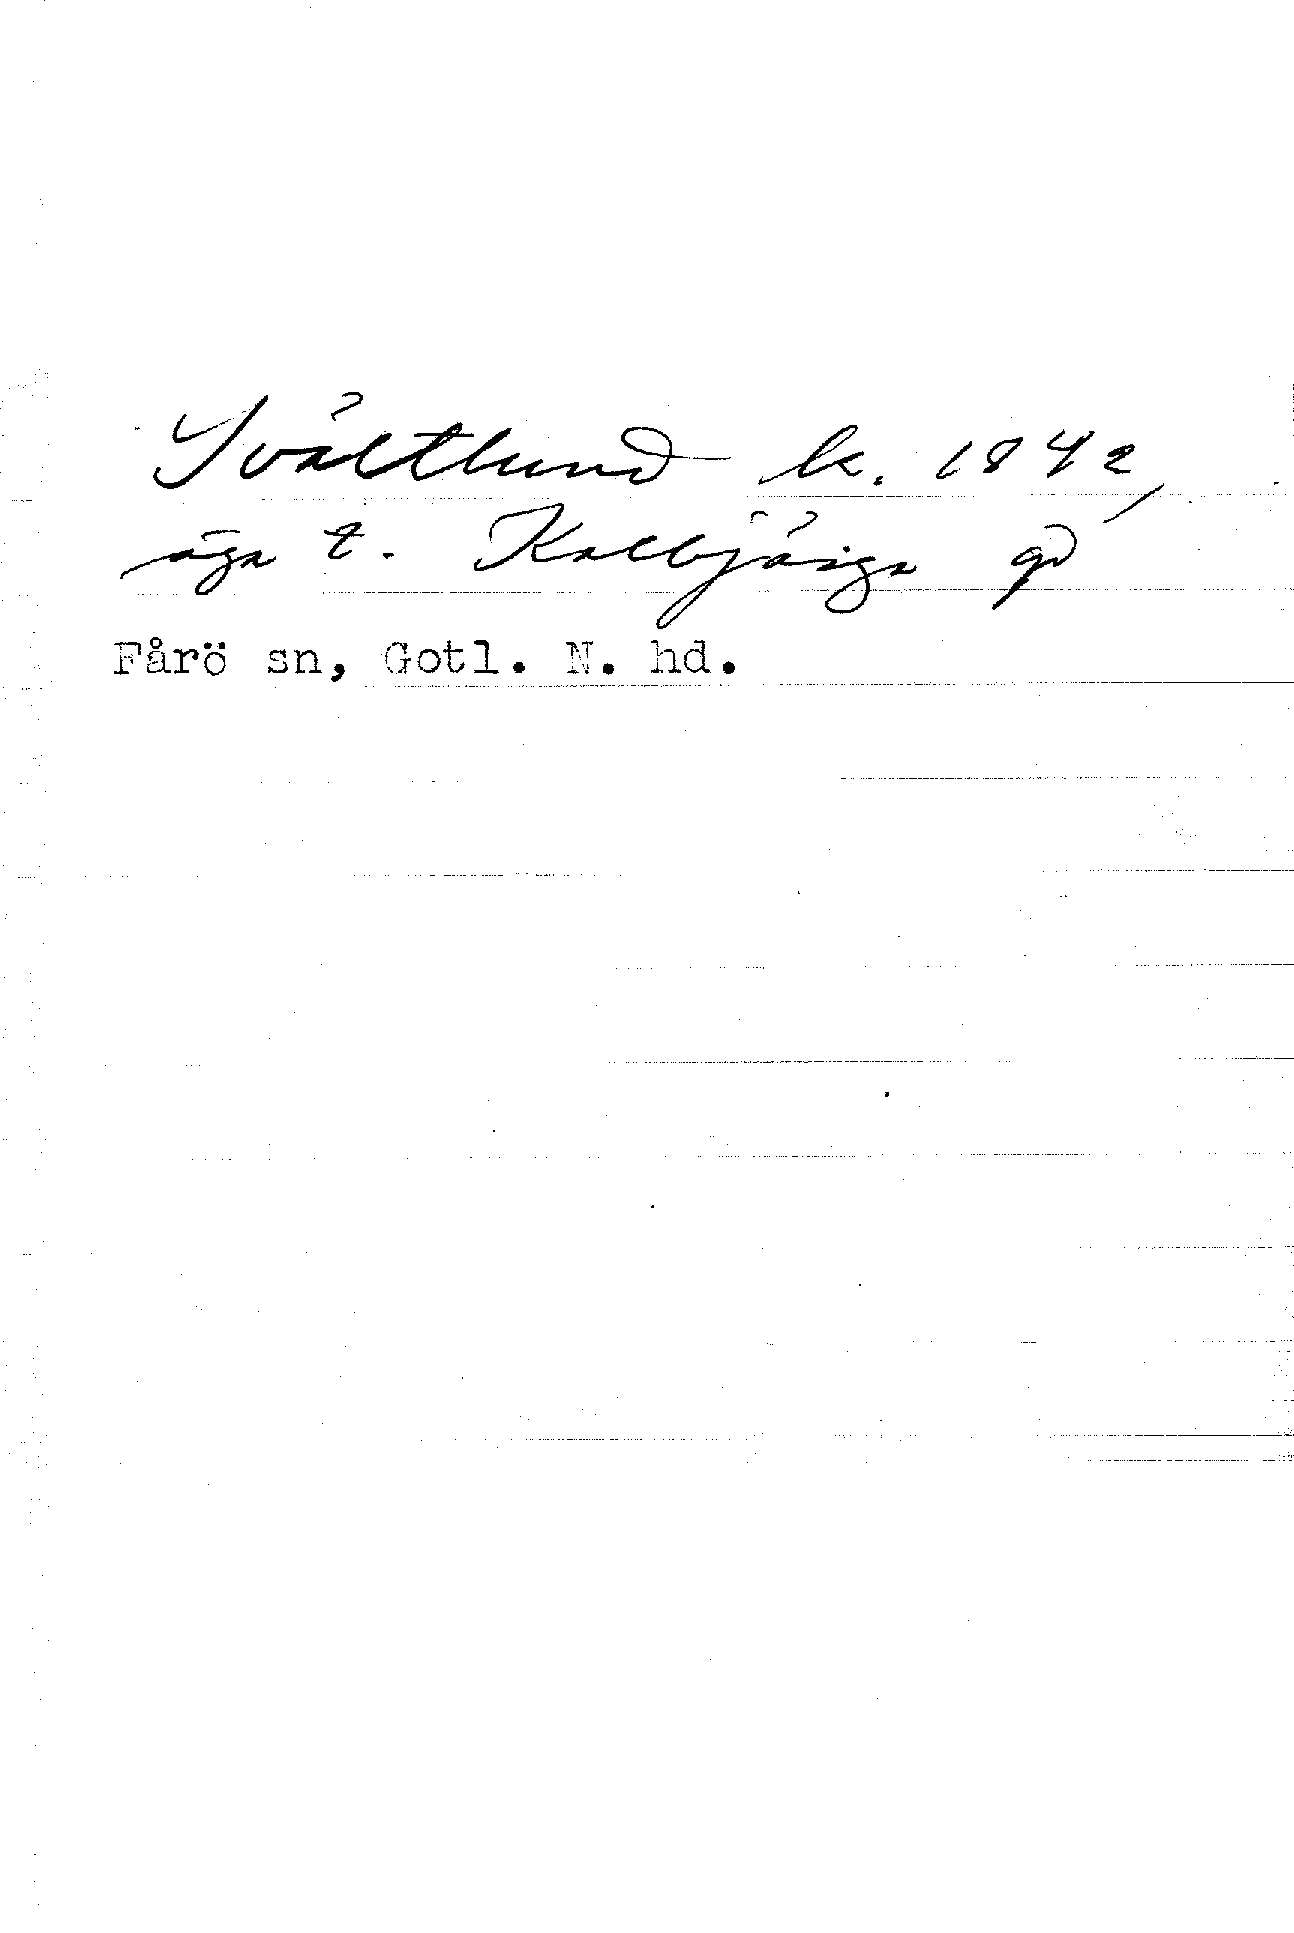 Svältlund k. 1842,
äga t. Kalbjärga gd
Fårö sn, Gotl. N. hd.